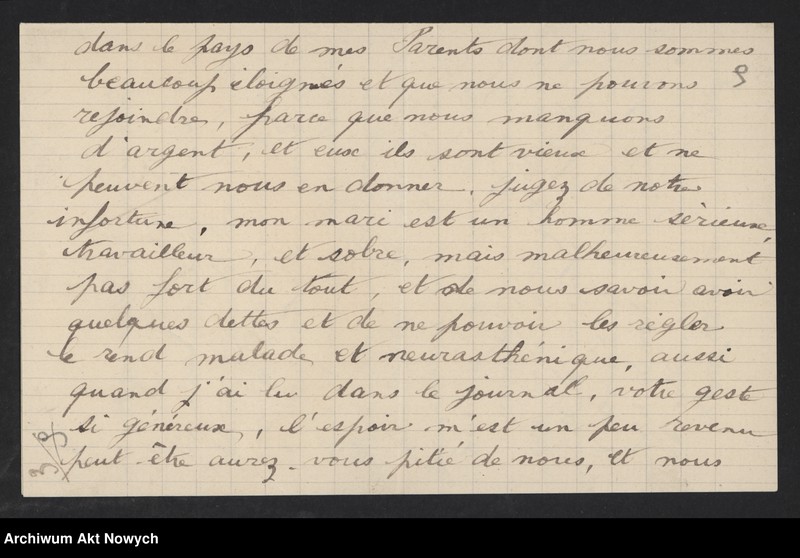 dans le pays de mes Parents dont nous sommes
beaucoup éloignés et que nous ne pouvons
9
rejoindre, parce que nous manquons
d'argent, et eux ils sont vieux et ne
peuvent nous en donner, jugez de notre
infortune, mon mari est un homme sérieux,
travailleur, et sobre, mais malheureusement
pas fort du tout, et de nous savoir avoir
quelques dettes et de ne pouvoir les régler
le rend malade et neurasthénique, aussi
quand j'ai lu dans le journal, votre geste
si généreux, l'espoir m'est un peu revenu
peut-être aurez-vous pitié de nous, et nous
Archiwum Akt Nowych